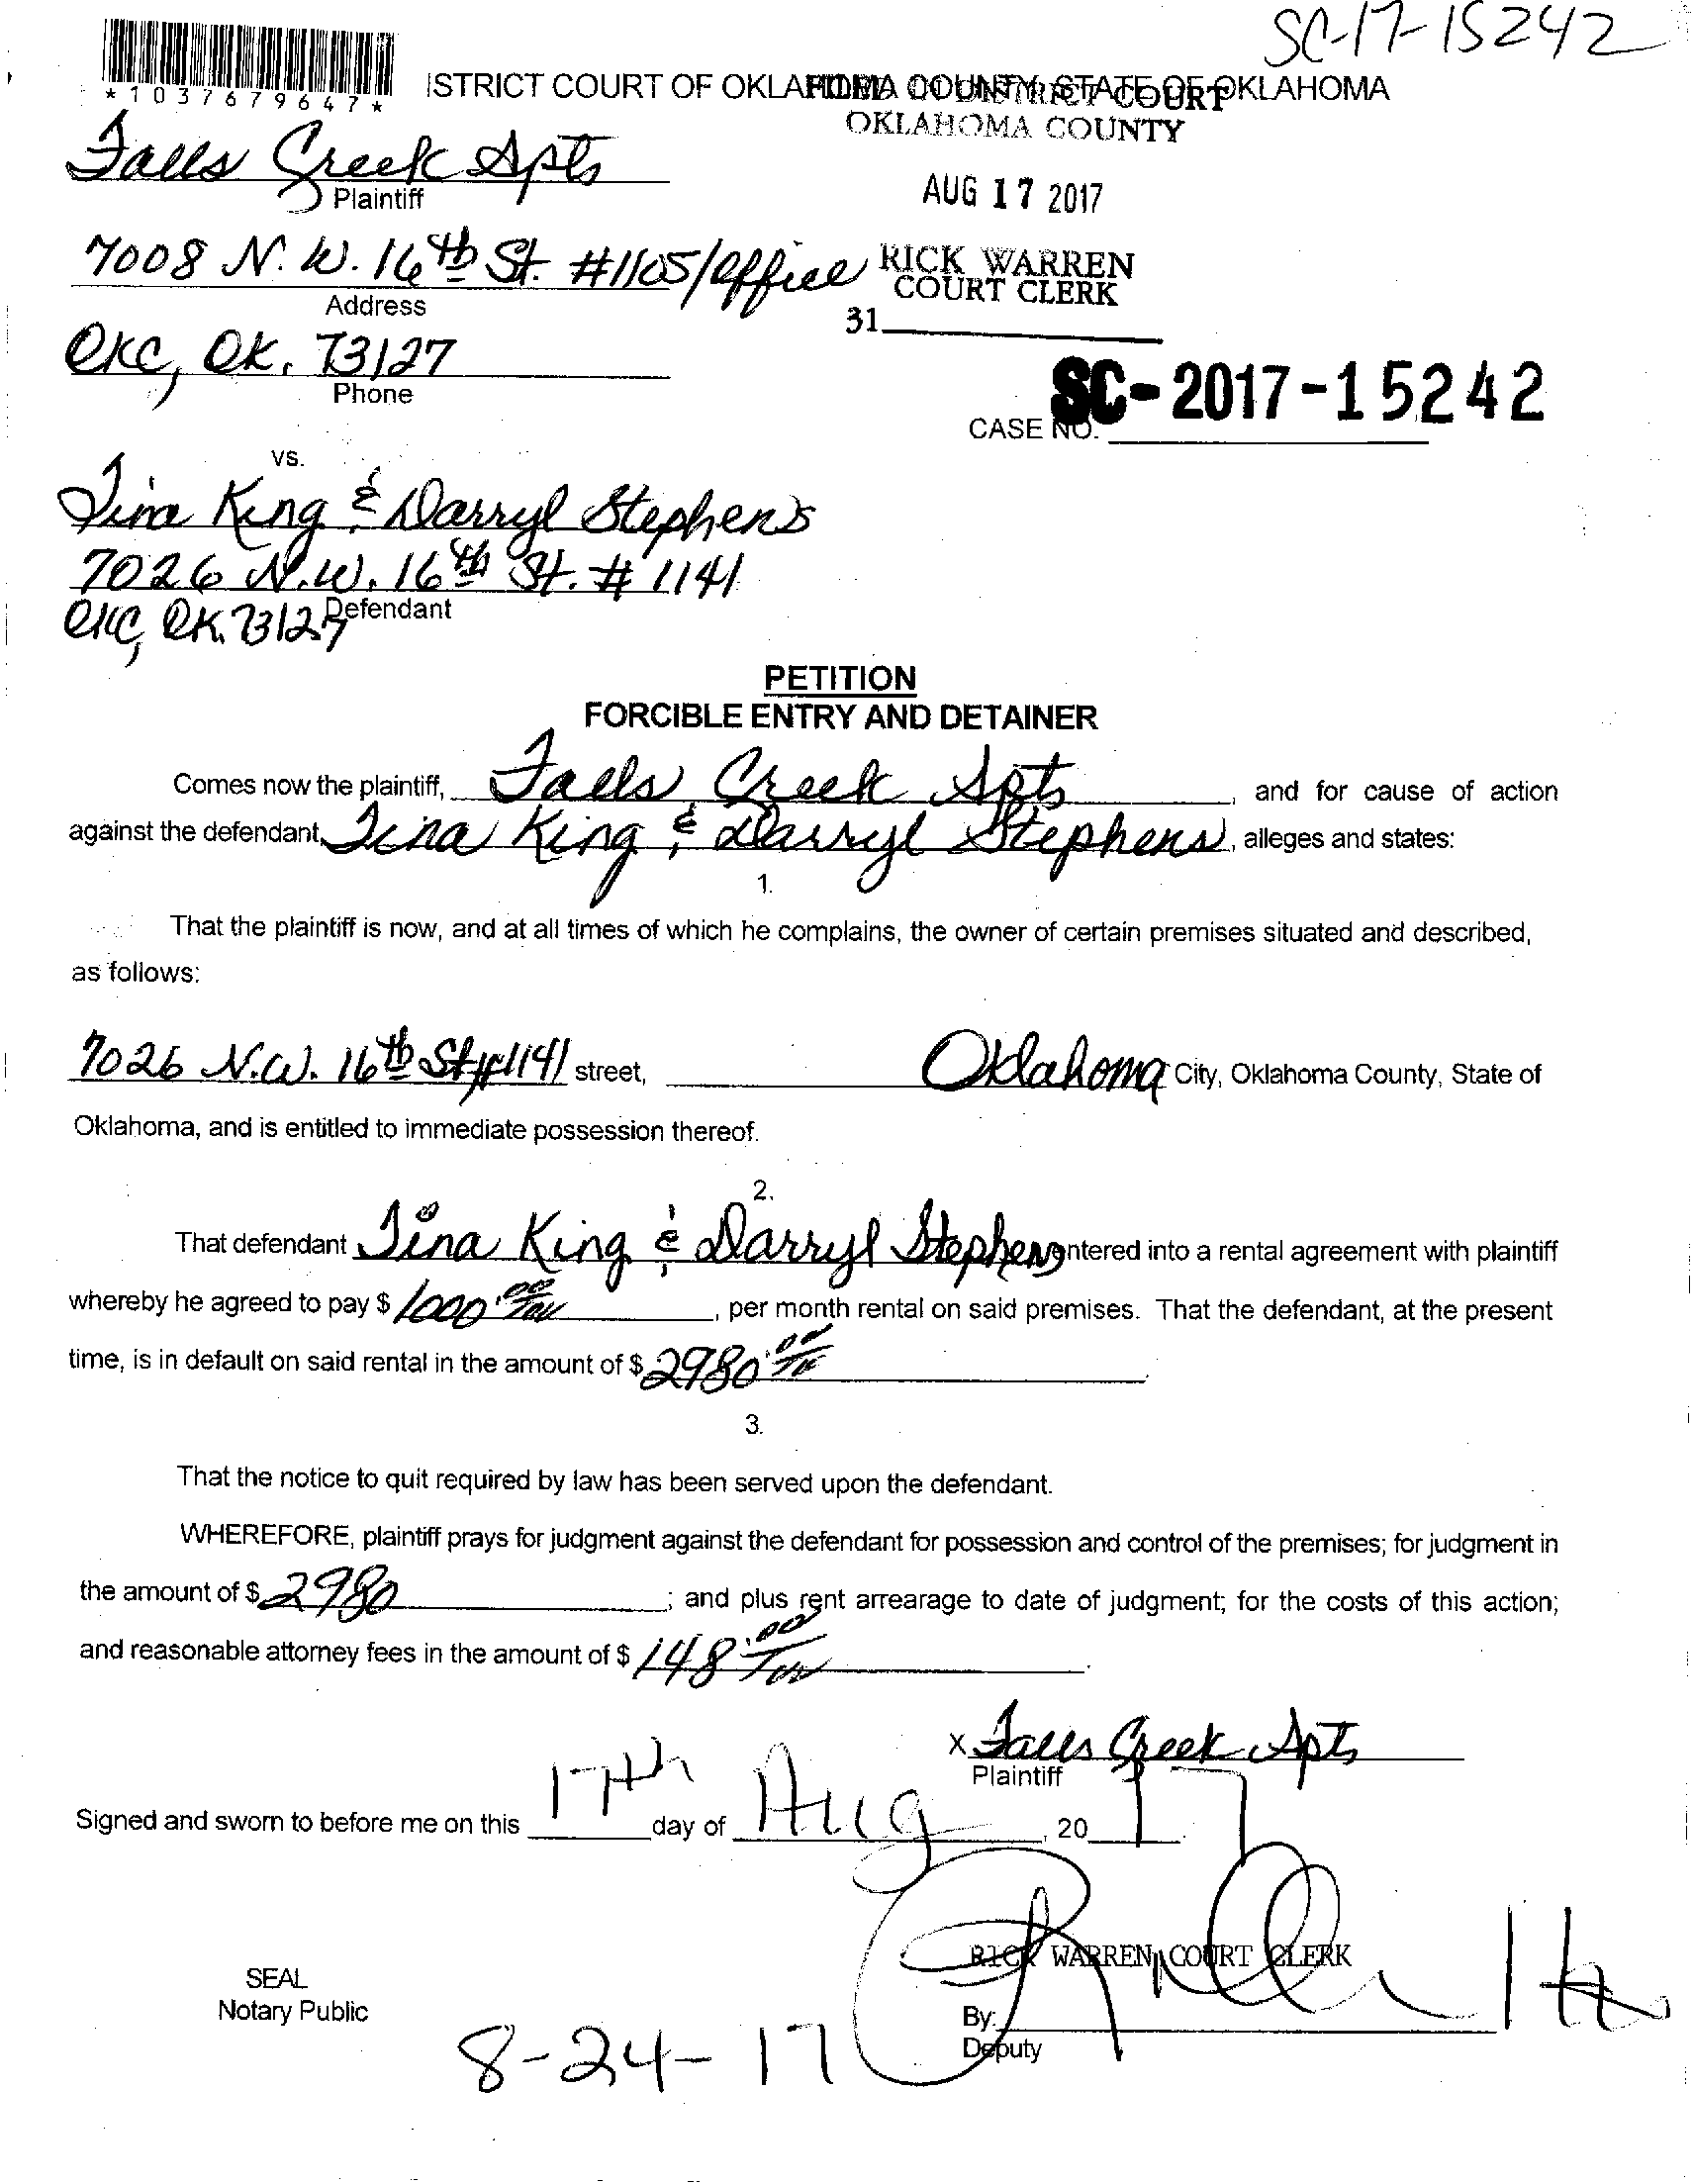 SC-17-15242
*1037679647*
ISTRICT COURT OF OKLAHOMA COUNTY, STATE OF OKLAHOMA
FILED IN DISTRICT COURT
OKLAHOMA COUNTY
Falls Creek Apts
Plaintiff
AUG 17 2017
7008 N.W. 16th St. #1105/Office
Address
RICK WARREN
COURT CLERK
31
OKC, OK. 73127
Phone
SC-2017-15242
CASE NO.
vs.
Tina King & Darryl Stephens
7026 N.W. 16th St. # 1141
OKC, OK. 73127
Defendant
PETITION
FORCIBLE ENTRY AND DETAINER
Comes now the plaintiff, Falls Creek Apts, and for cause of action
against the defendant, Tina King & Darryl Stephens, alleges and states:
1.
That the plaintiff is now, and at all times of which he complains, the owner of certain premises situated and described,
as follows:
7026 N.W. 16th St #1141 street, Oklahoma City, Oklahoma County, State of
Oklahoma, and is entitled to immediate possession thereof.
2.
That defendant Tina King & Darryl Stephens entered into a rental agreement with plaintiff
whereby he agreed to pay $ 1000.00, per month rental on said premises. That the defendant, at the present
time, is in default on said rental in the amount of $ 2980.00
3.
That the notice to quit required by law has been served upon the defendant.
WHEREFORE, plaintiff prays for judgment against the defendant for possession and control of the premises; for judgment in
the amount of $ 2980; and plus rent arrearage to date of judgment; for the costs of this action;
and reasonable attorney fees in the amount of $ 148.00.
x Falls Creek Apts
Plaintiff
Signed and sworn to before me on this 17th day of Aug, 2017
RICK WARREN, COURT CLERK
SEAL
Notary Public
By:
Deputy
8-24-17